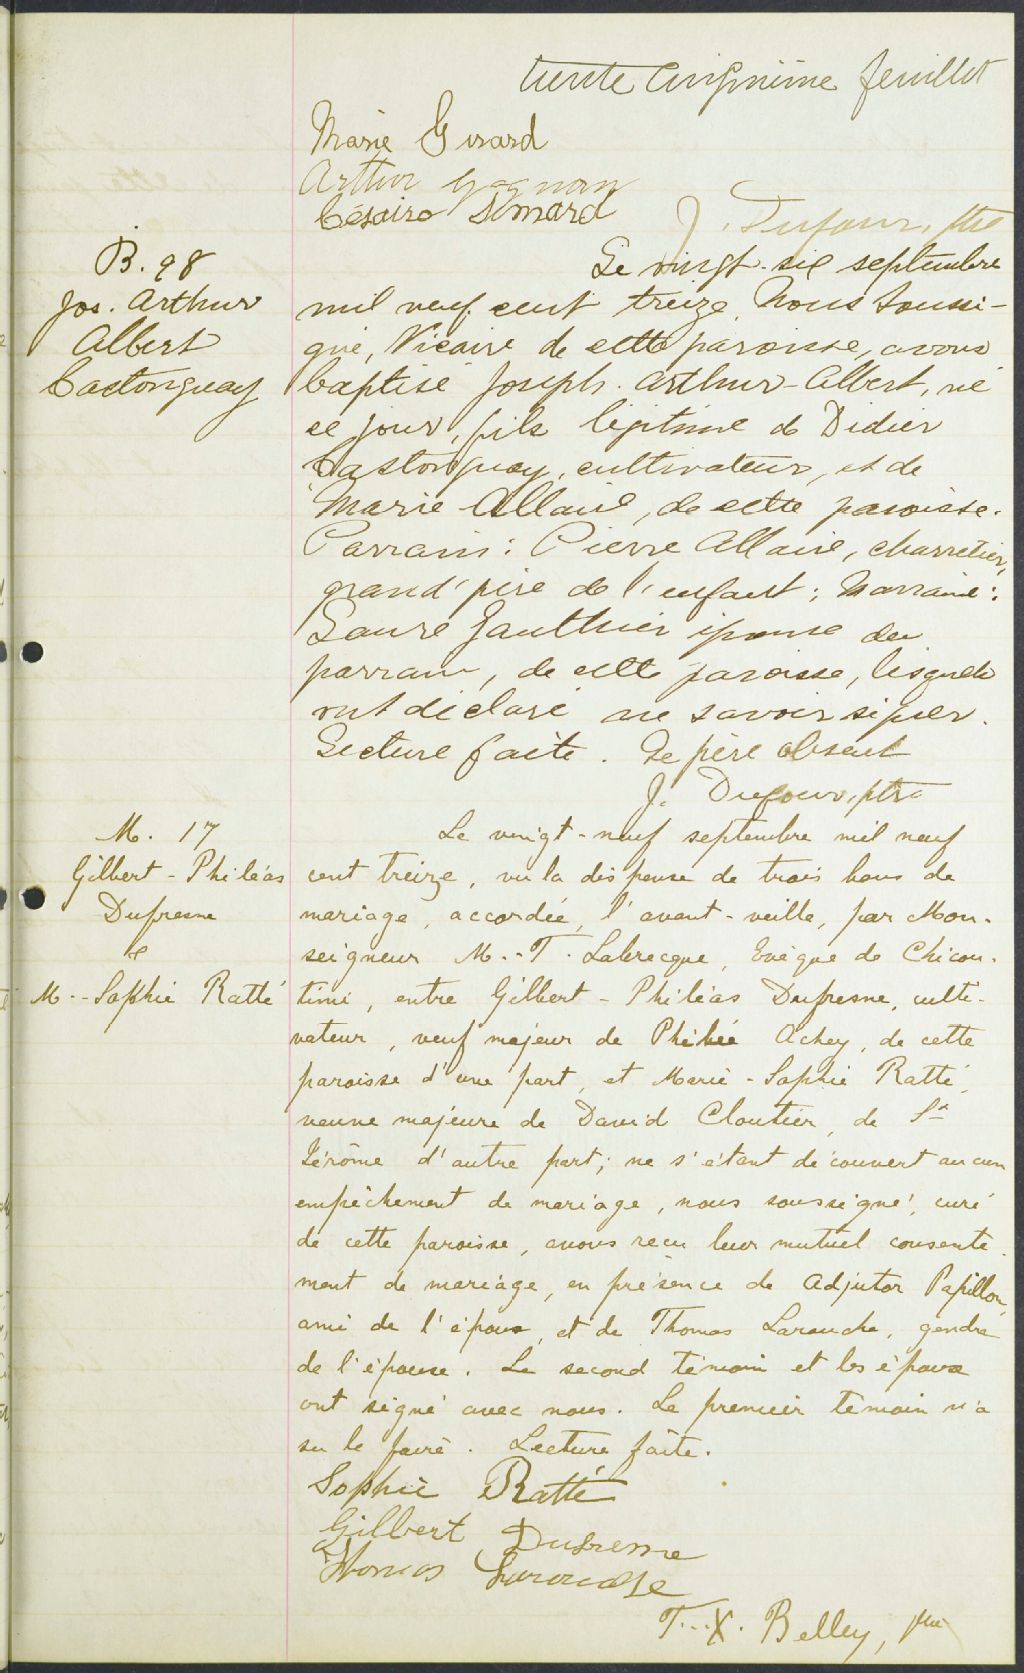 trente cinquième feuillet
Marie Girard
Arthur Gagnon
Césaire Simard
J. Dufour, ptre
B. 98
Jos. Arthur
Albert
Castonguay
Le vingt-six septembre
mil neuf cent treize, Nous soussi-
gné, Vicaire de cette paroisse, avons
baptisé Joseph-Arthur-Albert, né
ce jour, fils légitime de Didier
Castonguay, cultivateur, et de
Marie Allaire, de cette paroisse.
Parrain: Pierre Allaire, charretier,
grand'père de l'enfant; Marraine:
Laure Gauthier épouse du
parrain, de cette paroisse, lesquels
ont déclaré ne savoir signer.
Lecture faite. Le père absent
J. Dufour, ptre
M. 17
Gilbert-Philéas
Dufresne
&
M.-Sophie Ratté
Le vingt-neuf septembre mil neuf
cent treize, vu la dispense de trois bans de
mariage, accordée, l'avant-veille, par Mon-
seigneur M.-T. Labrecque, Evêque de Chicou-
timi, entre Gilbert-Philéas Dufresne, culti-
vateur, veuf majeur de Philié Achey, de cette
paroisse d'une part, et Marie-Sophie Ratté,
veuve majeure de David Cloutier, de St
Jérôme d'autre part; ne s'étant découvert aucun
empêchement de mariage, nous soussigné, curé
de cette paroisse, avons reçu leur mutuel consente-
ment de mariage, en présence de Adjutor Papillon,
ami de l'époux, et de Thomas Larouche, gendre
de l'épouse. Le second témoin et les époux
ont signé avec nous. Le premier témoin n'a
su le faire. Lecture faite.
Sophie Ratté
Gilbert Dufresne
Thomas Larouche
T.-X. Belley, ptre